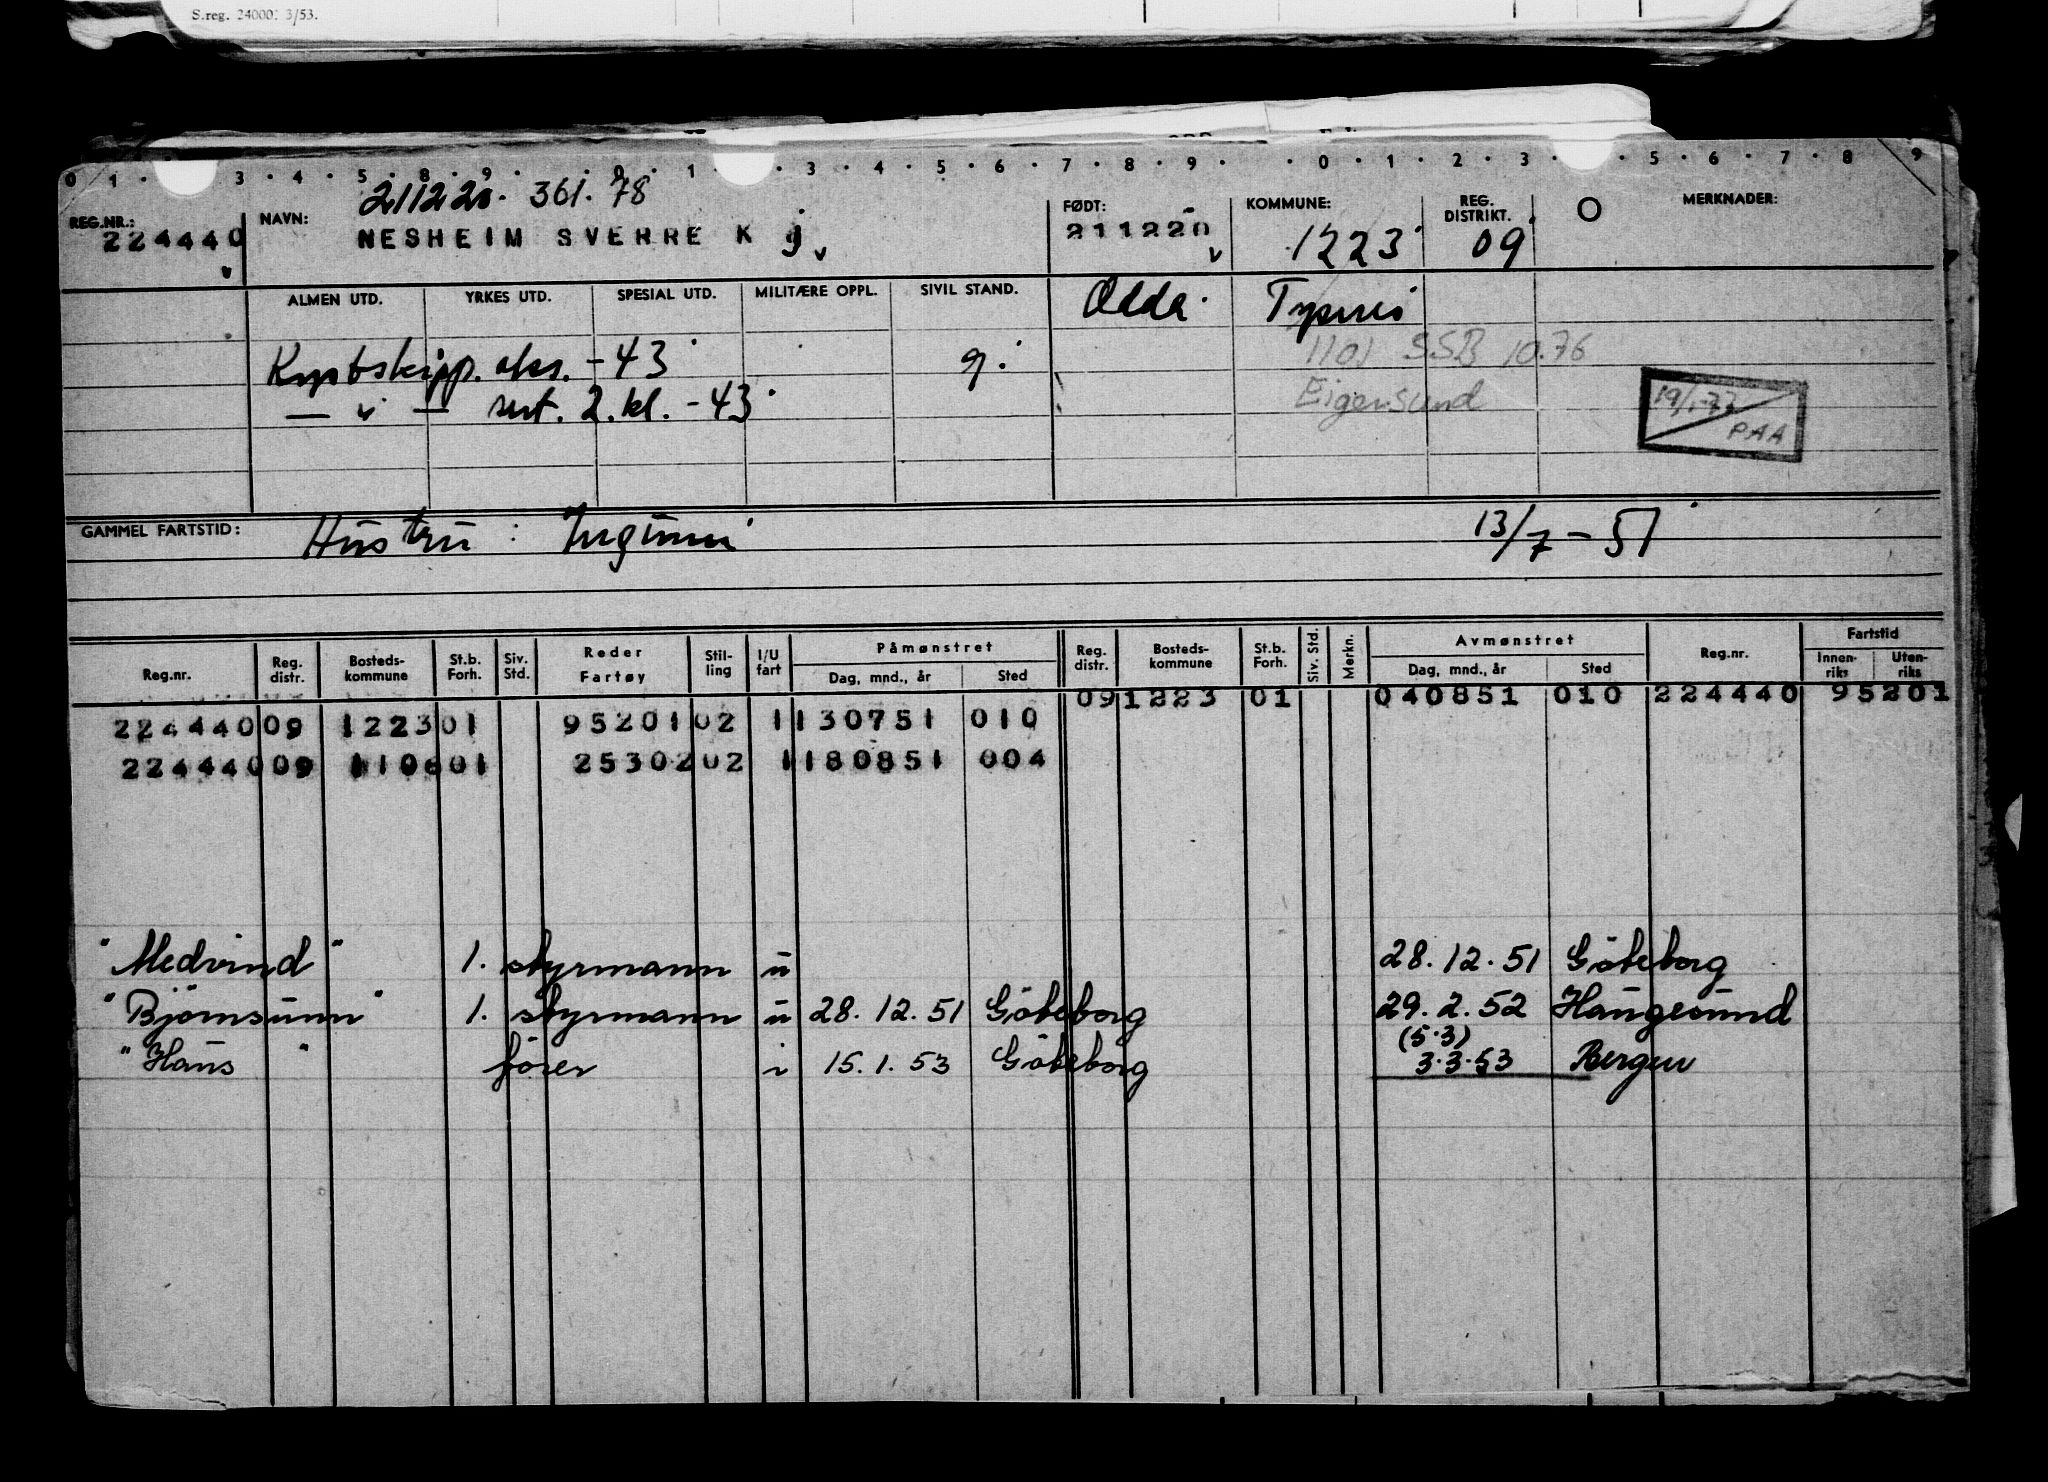 S.reg. 24000. 3/53.
0 1 · 3 · 4 · 5 · 8 · 9 · 0 · 1 · 3 · 4 · 5 · 6 · 7 · 8 · 9 · · 0 · 1 · 2 · 3 · 5 · 6 · 7 · 8 9
211220. 361.78
REG.NR.: 224440 NAVN: NESHEIM SVERRE K g FØDT: 211220 KOMMUNE: 1223 REG. DISTRIKT. 09 O MERKNADER:
ALMEN UTD. YRKES UTD. SPESIAL UTD. MILITÆRE OPPL. SIVIL STAND. Odda
1101 SSB 10.76
Kystskipp. eks. - 43 g.
Eigersund
— " — sert. 2. kl. - 43
19/1-77
PAA
GAMMEL FARTSTID: Hustru : Ingunn 13/7 - 51
Reg.nr. Reg. distr. Bosteds-kommune St.b. Forh. Siv. Std. Reder Fartøy Stil-ling I/U fart Påmønstret Dag, mnd., år Sted Reg. distr. Bosteds-kommune St.b. Forh. Siv. Std. Merkn. Avmønstret Dag, mnd., år Sted Reg.nr. Fartstid Innen-riks Uten-riks
09 1223 01 040851 010 224440 95201
224440 09 1223 01 95201 02 1 130751 010
224440 09 1106 01 25302 02 1 180851 004
"Medvind" 1. styrmann u 28.12.51 Göteborg
"Björnsunn" 1. styrmann u 28.12.51 Göteborg 29.2.52 Haugesund
(5.3)
"Haus" fører i 15.1.53 Göteborg 3.3.53 Bergen